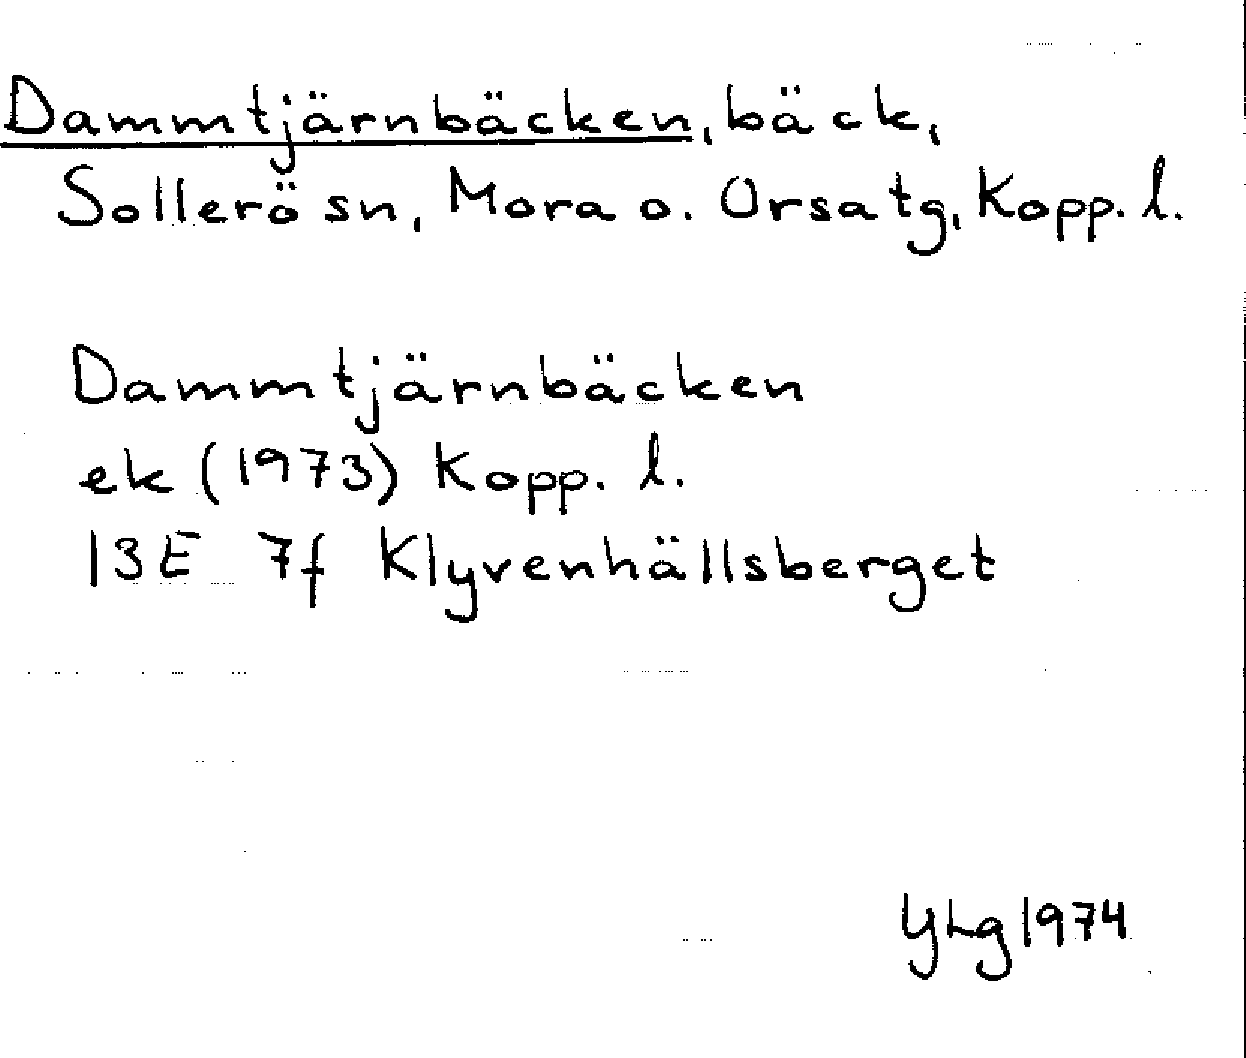 Dammtjärnbäcken, bäck,
Sollerö sn, Mora o. Orsa tg, Kopp. l.
Dammtjärnbäcken
ek (1973) Kopp. l.
13E 7f Klyvenhällsberget
YLg 1974